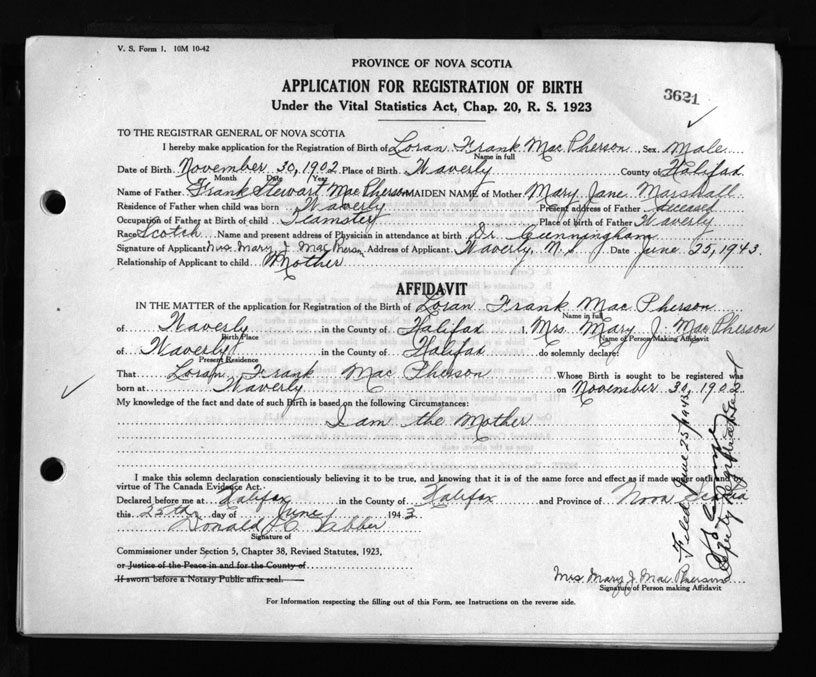 V. S. Form 1. 10M 10-42
PROVINCE OF NOVA SCOTIA
APPLICATION FOR REGISTRATION OF BIRTH
Under the Vital Statistics Act, Chap. 20, R. S. 1923
3621
TO THE REGISTRAR GENERAL OF NOVA SCOTIA
I hereby make application for the Registration of Birth of Loran Frank MacPherson Sex Male
Name in full
Date of Birth November 30, 1902 Place of Birth Waverly County of Halifax
Month Date Year
Name of Father Frank Stewart MacPherson MAIDEN NAME of Mother Mary Jane Marshall
Residence of Father when child was born Waverly Present address of Father deceased
Occupation of Father at Birth of child Teamster Place of birth of Father Waverly
Race Scotch Name and present address of Physician in attendance at birth Dr Cunningham
Signature of Applicant Mrs. Mary J. MacPherson Address of Applicant Waverly, N.S. Date June 25, 1943.
Relationship of Applicant to child Mother
AFFIDAVIT
IN THE MATTER of the application for Registration of the Birth of Loran Frank MacPherson
Name in full
of Waverly in the County of Halifax I, Mrs. Mary J. MacPherson
Birth Place Name of Person Making Affidavit
of Waverly in the County of Halifax do solemnly declare:
Present Residence
That Loran Frank MacPherson Whose Birth is sought to be registered was
born at Waverly on November 30, 1902
My knowledge of the fact and date of such Birth is based on the following Circumstances:
I am the Mother
I make this solemn declaration conscientiously believing it to be true, and knowing that it is of the same force and effect as if made under oath and by
virtue of The Canada Evidence Act.
Declared before me at Halifax in the County of Halifax and Province of Nova Scotia
this 25th day of June 1943
Donald
Signature of
Commissioner under Section 5, Chapter 38, Revised Statutes, 1923,
or Justice of the Peace in and for the County of
If sworn before a Notary Public affix seal.
Mrs. Mary J. MacPherson
Signature of Person making Affidavit
For Information respecting the filling out of this Form, see Instructions on the reverse side.
Filed June 25/1943
Deputy Registrar General